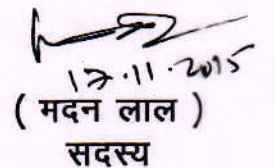 17.11.2015
( मदन लाल )
सदस्य